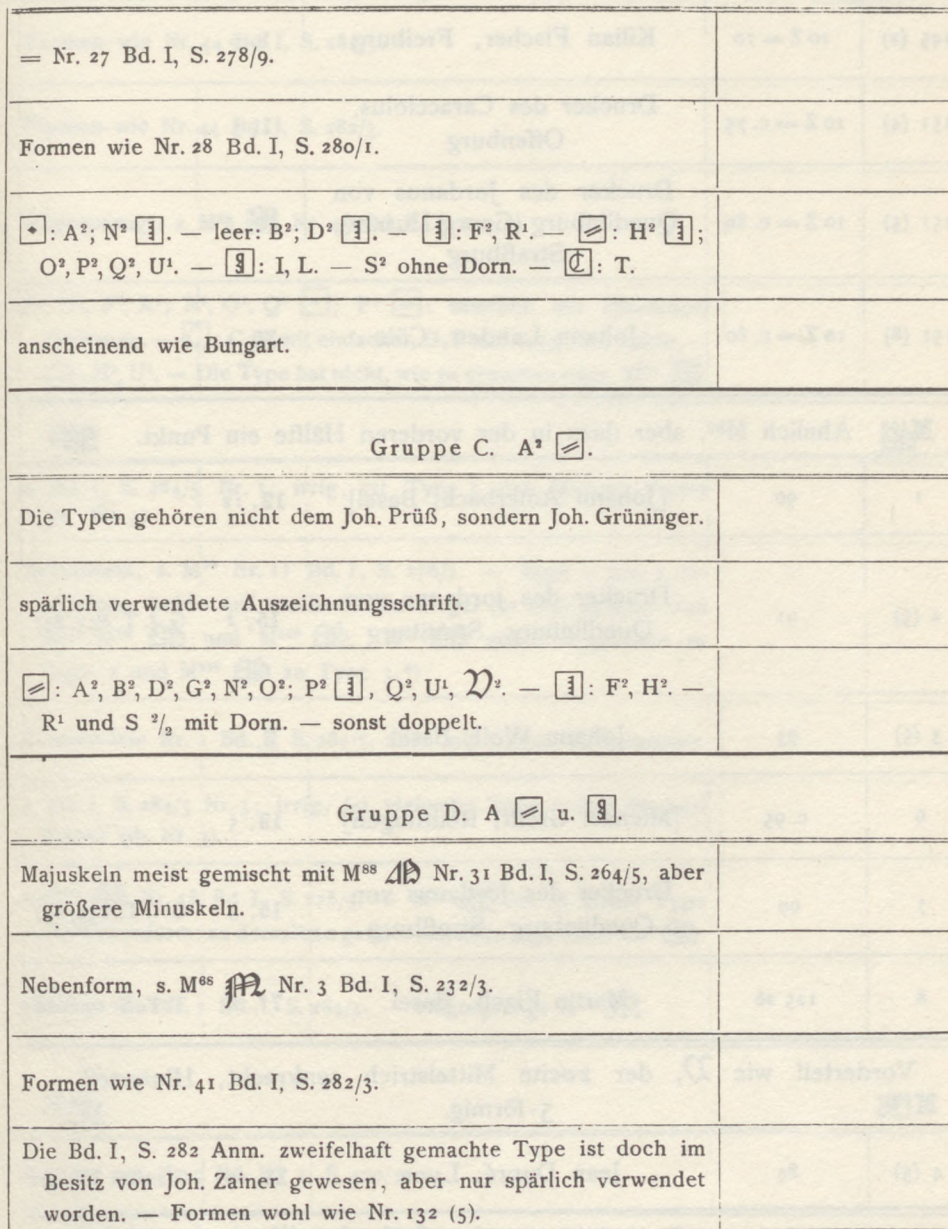 = Nr. 27 Bd. I, S. 278/9.
Formen wie Nr. 28 Bd. I, S. 280/1.
: A²; N² . — leer: B²; D² . — : F², R¹. — : H² ,
O², P², Q², U¹. — : I, L. — S² ohne Dorn. — : T.
anscheinend wie Bungart.
Gruppe C. A² .
Die Typen gehören nicht dem Joh. Prüß, sondern Joh. Grüninger.
spärlich verwendete Auszeichnungsschrift.
: A², B², D², G², N², O²; P² , Q², U¹, V². — : F², H². —
R¹ und S ²/₂ mit Dorn. — sonst doppelt.
Gruppe D. A u. .
Majuskeln meist gemischt mit M⁸⁸ Nr. 31 Bd. I, S. 264/5, aber
größere Minuskeln.
Nebenform, s. M⁶⁸ M Nr. 3 Bd. I, S. 232/3.
Formen wie Nr. 41 Bd. I, S. 282/3.
Die Bd. I, S. 282 Anm. zweifelhaft gemachte Type ist doch im
Besitz von Joh. Zainer gewesen, aber nur spärlich verwendet
worden. — Formen wohl wie Nr. 132 (5).